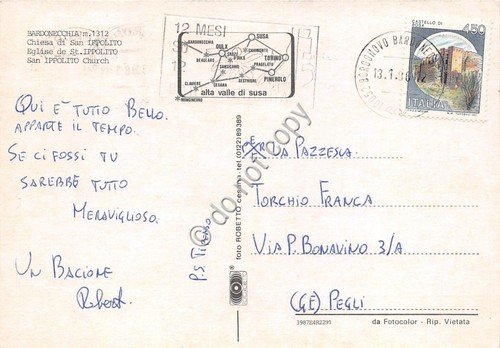 BARDONECCHIA m.1312
Chiesa di San IPPOLITO
Eglise de St. IPPOLITO
San IPPOLITO Church
12 MESI
BARDONECCHIA
SUSA
OULX
SAUZE
BEAULARD
SANSICARIO
PRAGELATO
TORINO
CLAVIERE
CESANA
SESTRIERE
PINEROLO
MONGINEVRO
alta valle di susa
CASTELLO DI
450
ITALIA
QUI È TUTTO BELLO.
APPARTE IL TEMPO.
SE CI FOSSI TU
SAREBBE TUTTO
MERAVIGLIOSO.
UN BACIONE
Robert.
P.S. TI PENSO
foto ROBETTO cesana tel.(0122)89389
PAZZESCA
TORCHIO FRANCA
VIA P. BONAVINO 3/A
(GE) PEGLI
da Fotocolor - Rip. Vietata
© do not copy